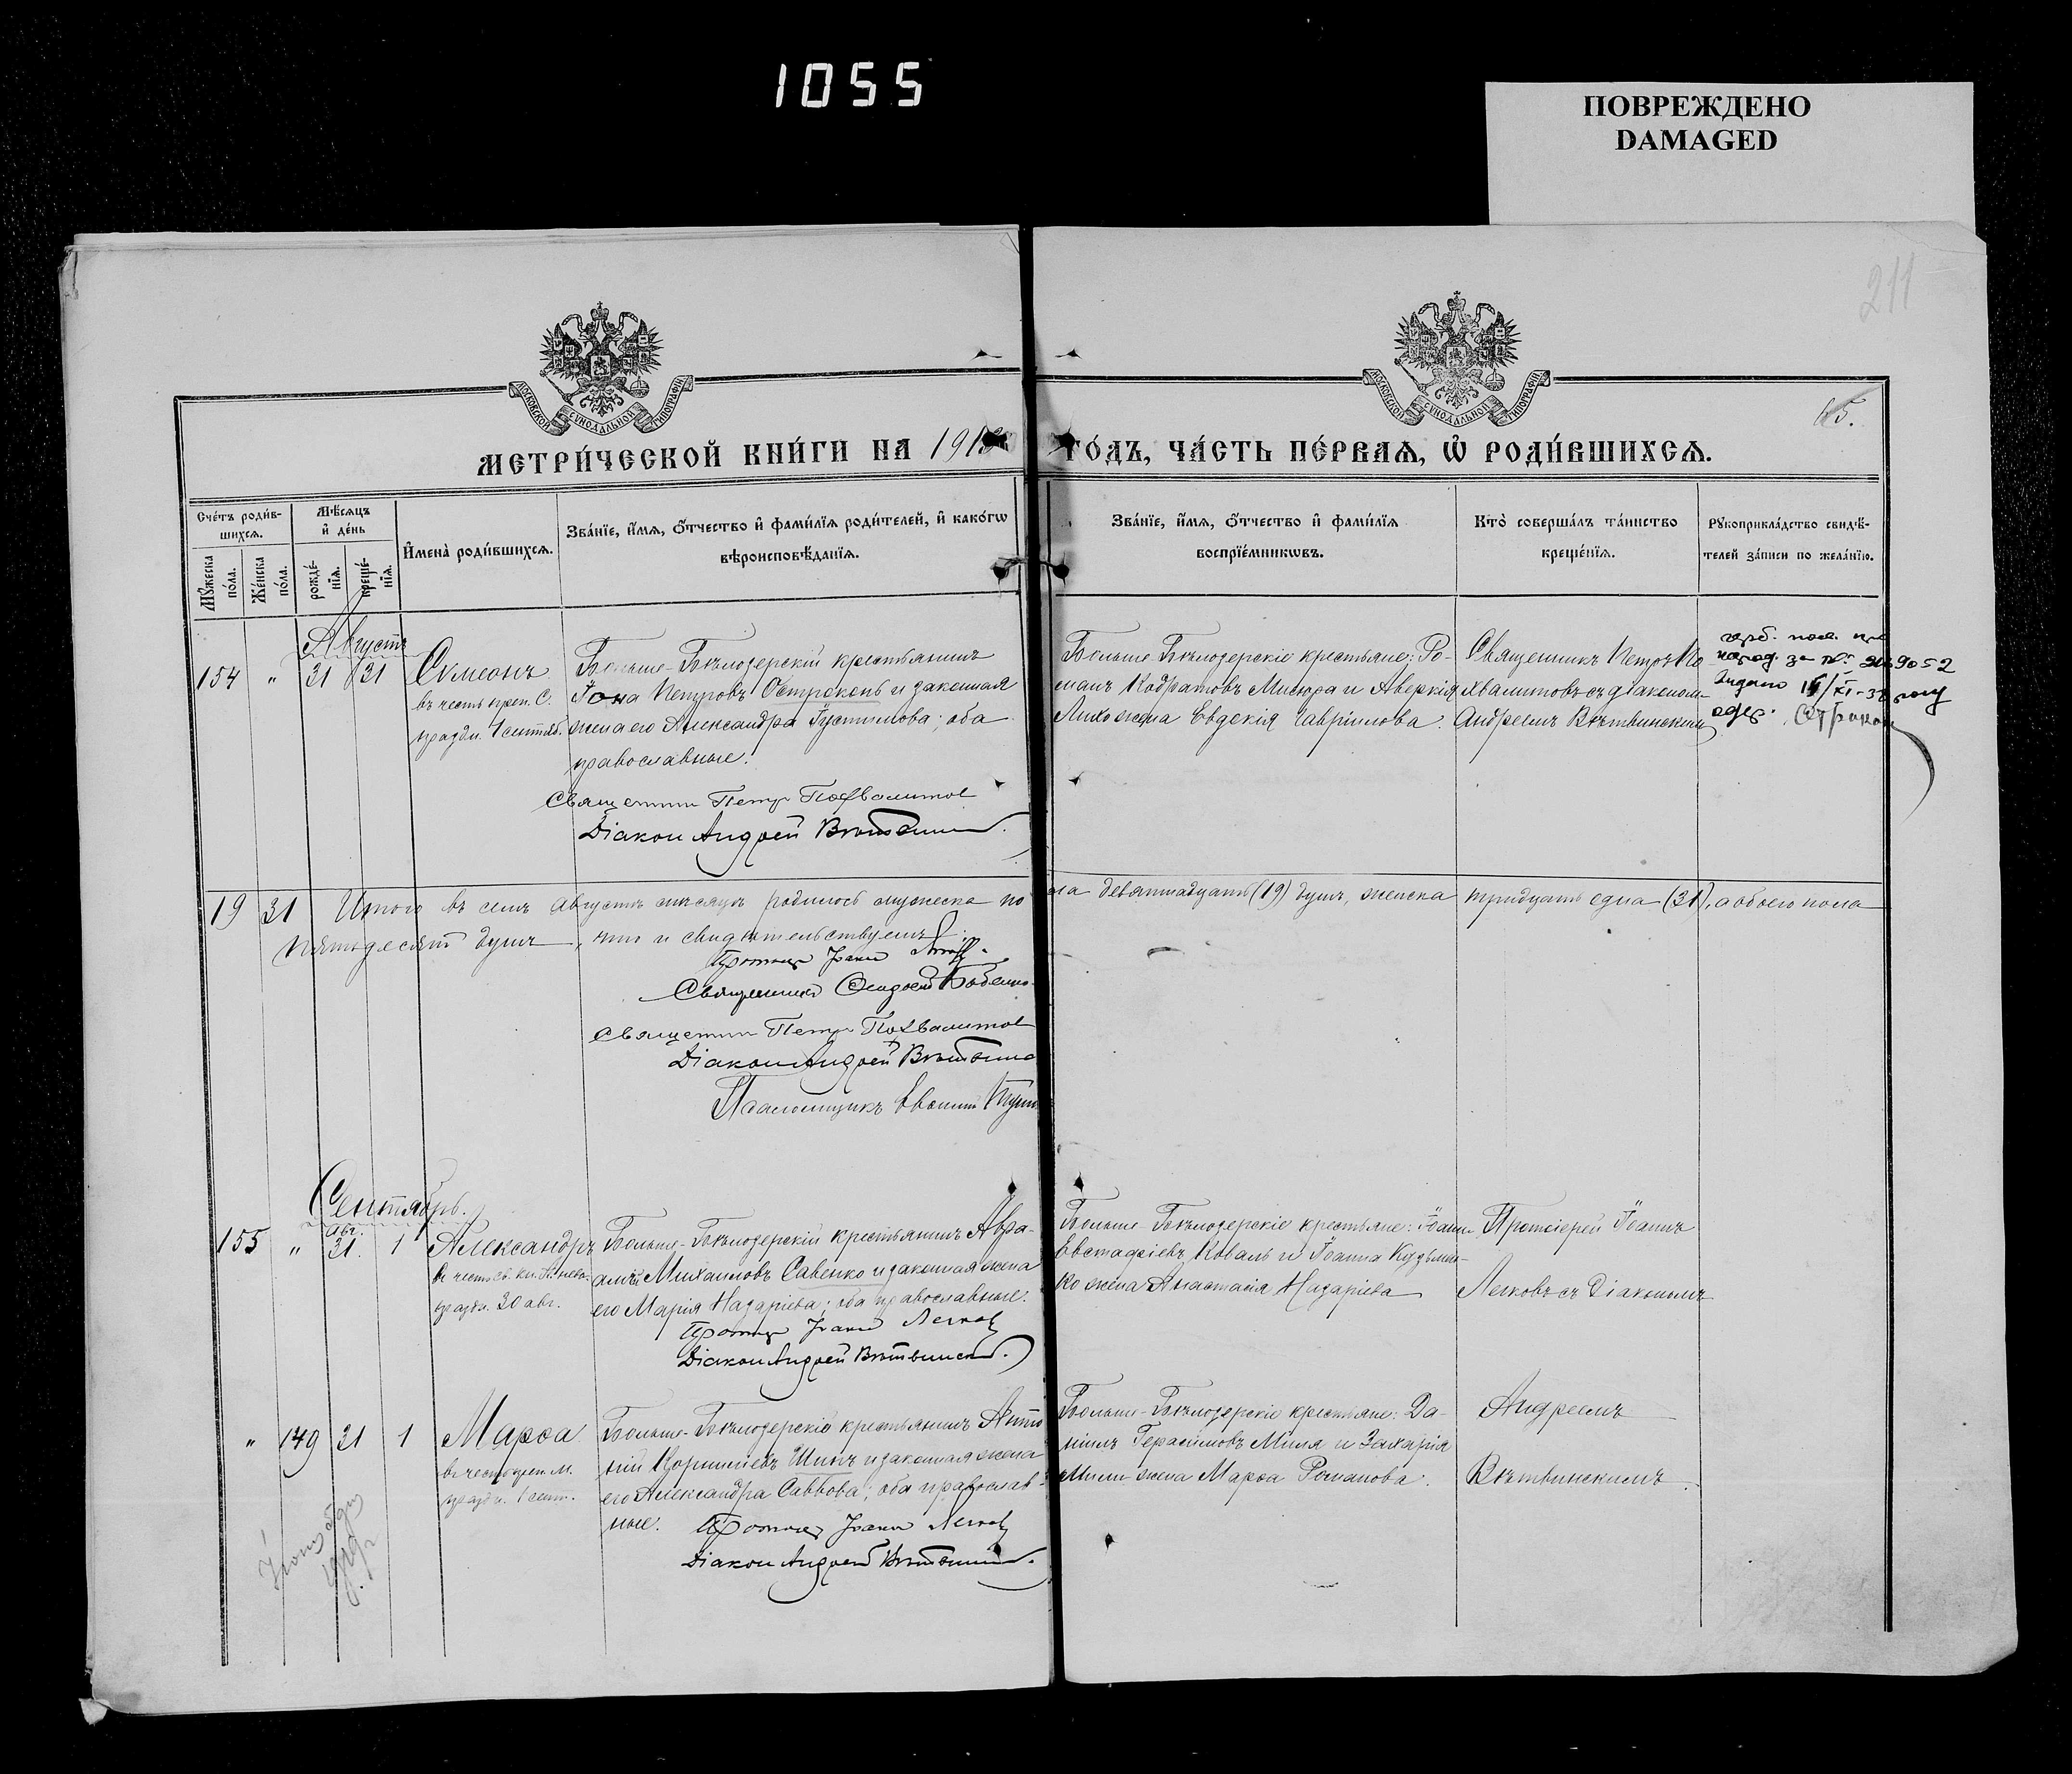 1055
ПОВРЕЖДЕНО
DAMAGED
211
65.
МОСКОВСКОЙ СѴНОДАЛЬНОЙ ТИПОГРАФІИ
МОСКОВСКОЙ СѴНОДАЛЬНОЙ ТИПОГРАФІИ
МЕТРИ́ЧЕСКОЙ КНИ́ГИ НА 1913 ГО́ДЪ, ЧА́СТЬ ПЕ́РВАѦ, Ѽ РОДИ́ВШИХСѦ.
Сче́тъ роди́в-
шихсѧ.
Мꙋ́жеска по́ла.
Же́нска по́ла.
Мѣ́сѧцъ и҆ де́нь
рожде́-нїѧ.
креще́-нїѧ.
И҆мена̀ роди́вшихсѧ.
Зва́нїе, и҆́мѧ, ѻ҆́тчество и҆ фами́лїѧ роди́телей, и҆ како́гѡ
вѣроисповѣ́данїѧ.
Зва́нїе, и҆́мѧ, ѻ҆́тчество и҆ фами́лїѧ
воспрїе́мникѡвъ.
Кто̀ соверша́лъ та́инство
креще́нїѧ.
Рꙋкоприкла́дство свидѣ́-
телей за́писи по жела́нїю.
Августъ
154 " 31 31 Симеонъ
въ честь преп. С.
праздн. 1 сентяб.
Больше-Бѣлозерскій крестьянинъ
Іона Петровъ Остроконь и законная
жена его Александра Густинова; оба
православные.
Священник Петр Похвалитов
Діакон Андрей Вѣтвинский.
Больше-Бѣлозерскіе крестьяне: Ро-
манъ Кодратовъ Мисюра и Аверкія
Лихо жена Евдокія Гаврилова.
Священникъ Петръ По-
хвалитовъ съ діакономъ
Андреемъ Вѣтвинскимъ
19 31 Итого въ семъ августѣ мѣсяцѣ родилось мужеска пола девятнадцать (19) душъ, женска тридцать одна (31), а обоего пола
пятьдесят душъ, что и свидѣтельствуемъ:
Священникъ
Священник Петр Похвалитов
Діакон Андрей Вѣтвинс
Псаломщикъ
Сентябрь.
155 " авг. 31. 1 Александръ
въ честь св. кн. А. Нева.
праздн. 30 авг.
Больше-Бѣлозерскій крестьянинъ Авра-
амъ Михаиловъ Савенко и законная жена
его Марія Назаріева; оба православные.
Протоіер Іоанн Легков
Діакон Андрей Вѣтвинский.
Больше-Бѣлозерскіе крестьяне: Іоаннъ
Евстафіевъ Коваль и Іоанна Кузьмен-
ко жена Анастасія Назаріева
Протоіерей Іоаннъ
Легковъ съ Діакономъ
" 149 31 1 Марѳа
въ честь преп. М.
праздн. 1 сент.
Больше-Бѣлозерскій крестьянинъ Анто-
ній Корниліевъ Шинъ и законная жена
его Александра Саввова; оба православ-
ные.
Протоіер Іоанн Легков
Діакон Андрей Вѣтвинский.
Больше-Бѣлозерскіе крестьяне: Да-
ніилъ Герасимовъ Миля и Захарія
Мили жена Марѳа Романова.
Андреемъ
Вѣтвинскимъ.